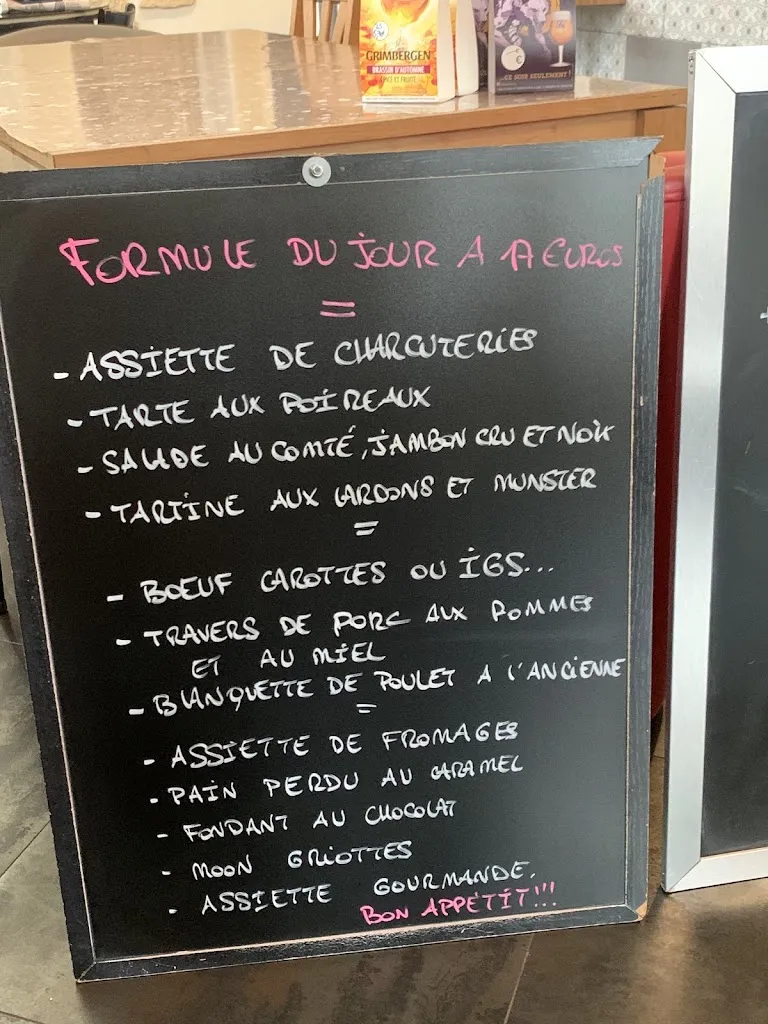 GRIMBERGEN
BRASSIN D'AUTOMNE
ÉPICÉ ET FRUITÉ
...CE SOIR SEULEMENT !
FORMULE DU JOUR A 17 EUROS
=
- ASSIETTE DE CHARCUTERIES
- TARTE AUX POIREAUX
- SALADE AU COMTÉ, JAMBON CRU ET NOIX
- TARTINE AUX LARDONS ET MUNSTER
=
- BOEUF CAROTTES OU IGS...
- TRAVERS DE PORC AUX POMMES
ET AU MIEL
- BLANQUETTE DE POULET A L'ANCIENNE
=
- ASSIETTE DE FROMAGES
- PAIN PERDU AU CARAMEL
- FONDANT AU CHOCOLAT
- MOON GRIOTTES
- ASSIETTE GOURMANDE.
BON APPÉTIT!!!